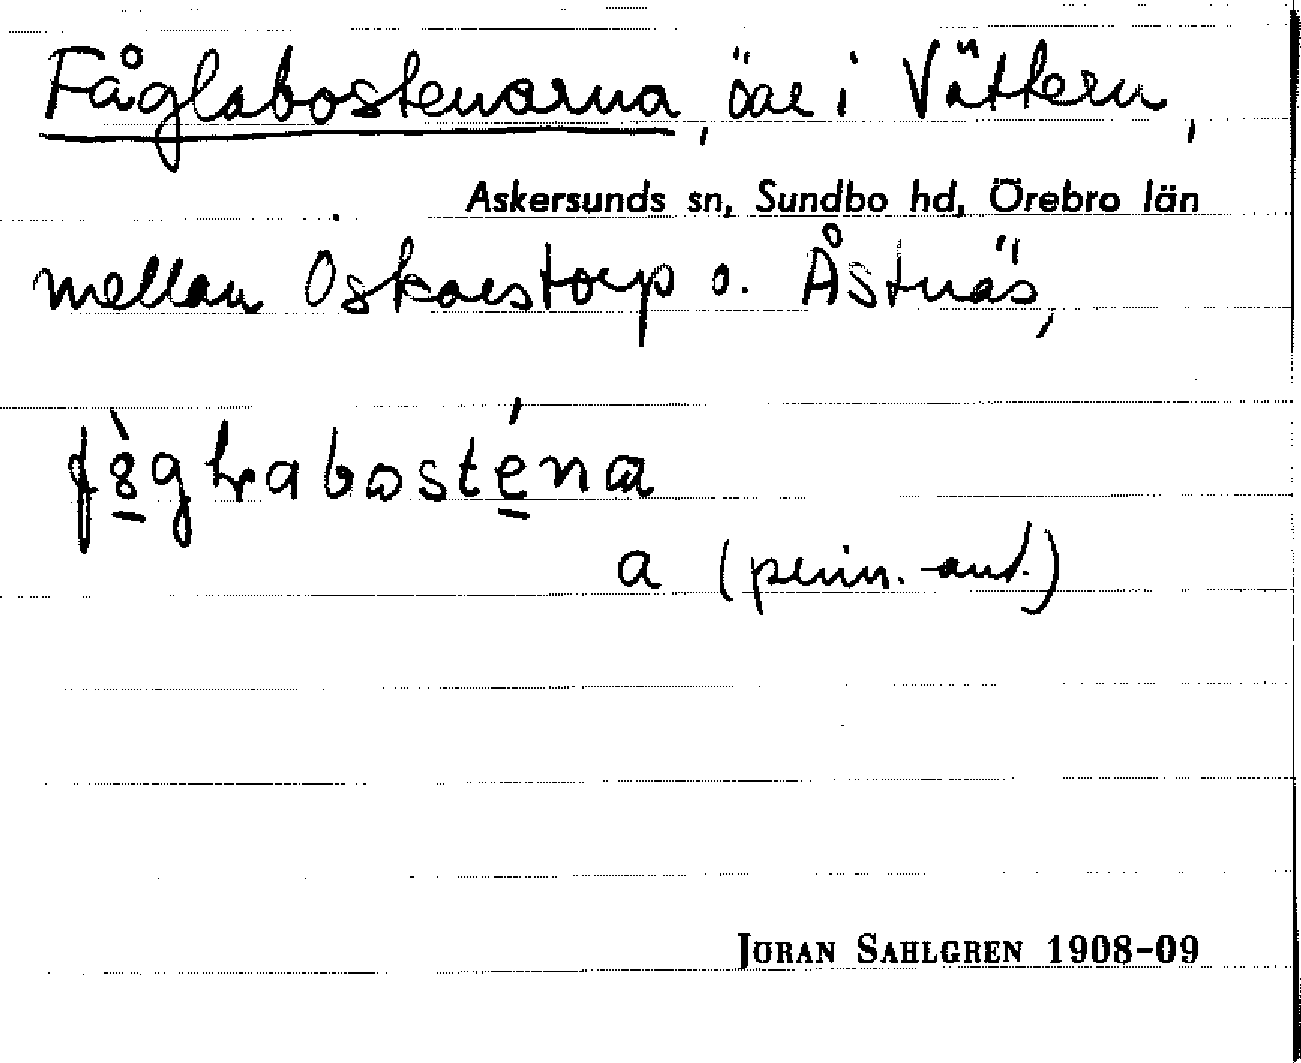 Fåglabostenarna, öar i Vättern,
Askersunds sn, Sundbo hd, Örebro län
mellan Oskarstorp o. Åstnäs,
a (penin. -and.)
JORAN SAHLGREN 1908-09